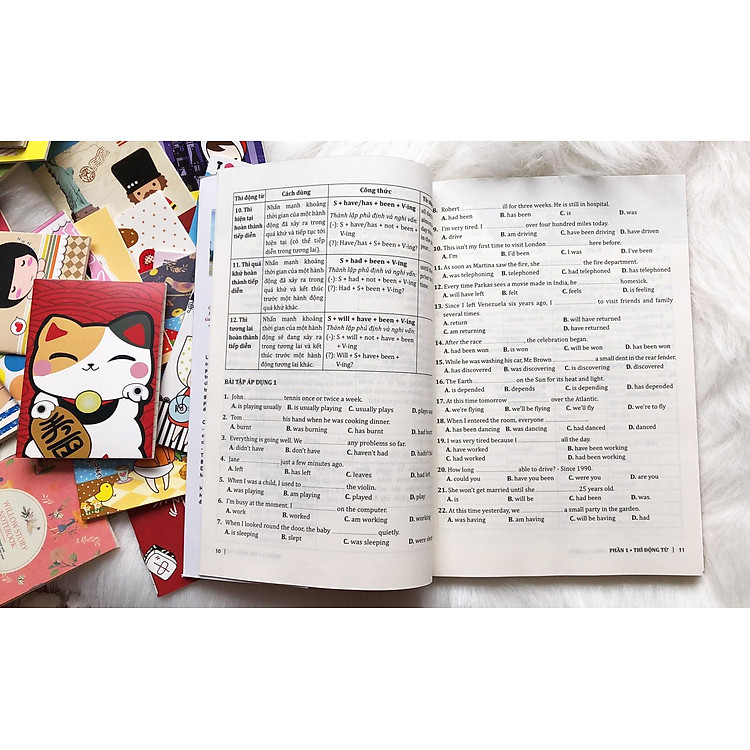 Thì động từ
Cách dùng
Công thức
10. Thì
hiện tại
hoàn thành
tiếp diễn
Nhấn mạnh khoảng
thời gian của một hành
động đã xảy ra trong
quá khứ và tiếp tục tới
hiện tại (có thể tiếp
diễn trong tương lai).
S + have/has + been + V-ing
Thành lập phủ định và nghi vấn:
(-): S + have/has + not + been +
V-ing
(?): Have/has + S+ been + V-ing?
11. Thì quá
khứ hoàn thành
tiếp diễn
Nhấn mạnh khoảng
thời gian của một hành
động đã xảy ra trong
quá khứ và kết thúc
trước một hành động
quá khứ khác.
S + had + been + V-ing
Thành lập phủ định và nghi vấn:
(-): S + had + not + been + V-ing
(?): Had + S + been + V-ing?
12. Thì
tương lai
hoàn thành
tiếp diễn
Nhấn mạnh khoảng
thời gian của một hành
động sẽ đang xảy ra
trong tương lai và kết
thúc trước một hành
động tương lai khác.
S + will + have + been + V-ing
Thành lập phủ định và nghi vấn:
(-): S + will + not + have + been
+ V-ing
(?): Will + S+ have+ been +
V-ing?
BÀI TẬP ÁP DỤNG 1
1. John ________ tennis once or twice a week.
A. is playing usually B. is usually playing C. usually plays D. plays
2. Tom ________ his hand when he was cooking dinner.
A. burnt B. was burning C. has burnt D. had burnt
3. Everything is going well. We ________ any problems so far.
A. didn't have B. don't have C. haven't had D. hadn't
4. Jane ________ just a few minutes ago.
A. left B. has left C. leaves D. had left
5. When I was a child, I used to ________ the violin.
A. was playing B. am playing C. played D. play
6. I'm busy at the moment. I ________ on the computer.
A. work B. worked C. am working D. working
7. When I looked round the door, the baby ________ quietly.
A. is sleeping B. slept C. was sleeping D. were
10
8. Robert ________ ill for three weeks. He is still in hospital.
A. had been B. has been C. is D. was
9. I'm very tired. I ________ over four hundred miles today.
A. drive B. am driving C. have been driving D. have driven
10. This isn't my first time to visit London ________ here before.
A. I'm B. I'd been C. I was D. I've been
11. As soon as Martina saw the fire, she ________ the fire department.
A. was telephoning B. telephoned C. had telephoned D. has telephoned
12. Every time Parkas sees a movie made in India, he ________ homesick.
A. will have left B. felt C. feels D. is feeling
13. Since I left Venezuela six years ago, I ________ to visit friends and family
several times.
A. return B. will have returned
C. am returning D. have returned
14. After the race ________, the celebration began.
A. had been won B. is won C. will be won D. has been won
15. While he was washing his car, Mr. Brown ________ a small dent in the rear fender.
A. has discovered B. was discovering C. is discovering D. discovered
16. The Earth ________ on the Sun for its heat and light.
A. is depended B. depends C. is depending D. has depended
17. At this time tomorrow ________ over the Atlantic.
A. we're flying B. we'll be flying C. we'll fly D. we're to fly
18. When I entered the room, everyone ________
A. has been dancing B. was dancing C. had danced D. danced
19. I was very tired because I ________ all the day.
A. have worked B. have been working
C. had worked D. had been working
20. How long ________ able to drive? - Since 1990.
A. could you B. have you been C. were you D. are you
21. She won't get married until she ________ 25 years old.
A. is B. will be C. had been D. was
22. At this time yesterday, we ________ a small party in the garden.
A. was having B. am having C. will be having D. had
PHẦN 1 • THÌ ĐỘNG TỪ | 11
WILLOW STORY
NOTEBOOK